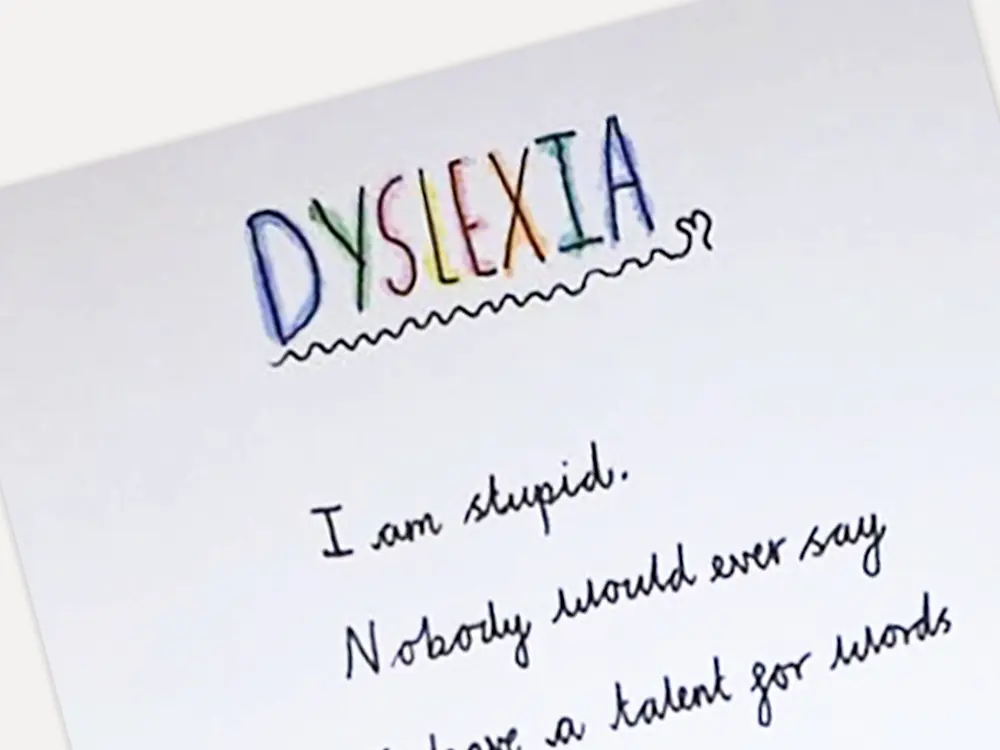 DYSLEXIA
I am stupid.
Nobody would ever say
have a talent for words